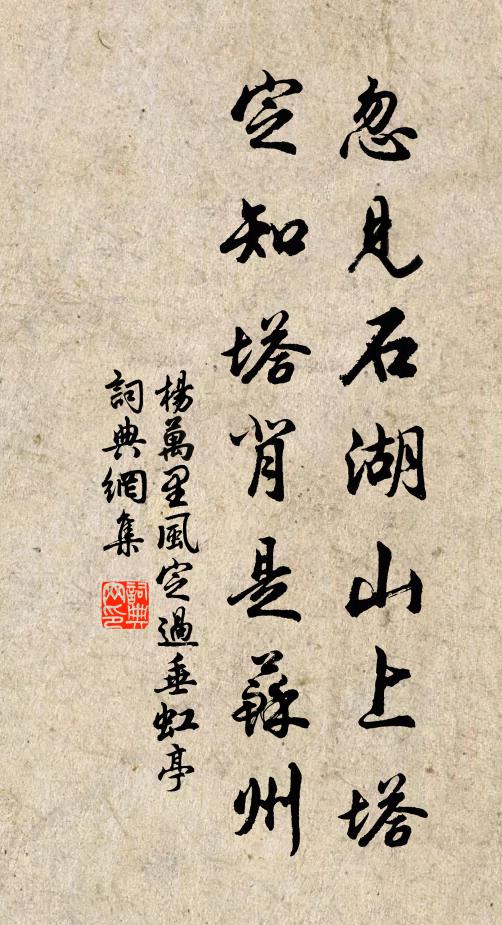 忽見石湖山上塔
定知塔背是蘇州
楊萬里風定過垂虹亭
詞典網集
詞典
网印